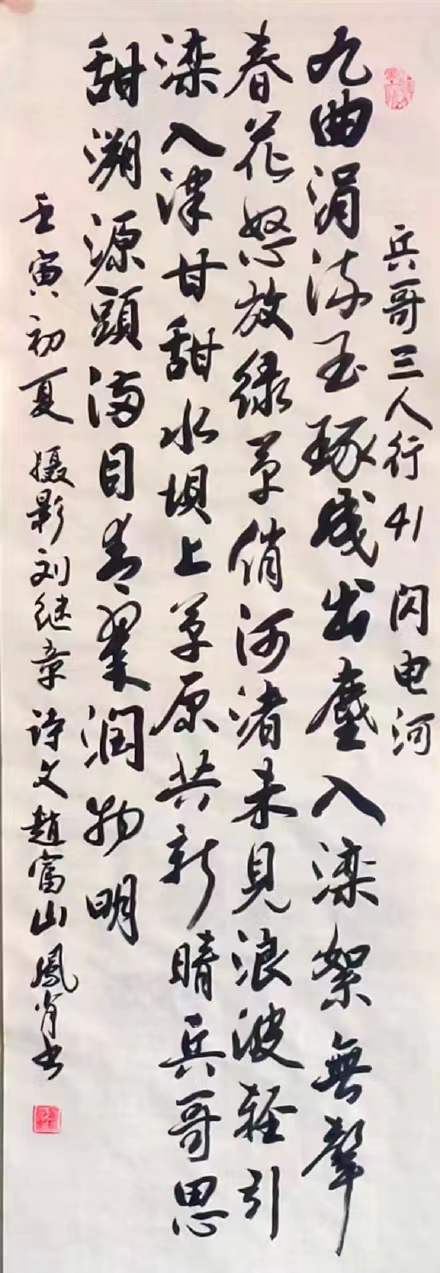 兵哥三人行41 闪电河
九曲涓流玉琢成出尘入滦絮無聲
春花怒放绿草俏河渚未見浪波轻引
滦入津甘甜水坝上草原共新晴兵哥思
甜溯源頭满目青翠润物明
壬寅初夏 摄影刘继章 诗文趙富山 鳳肖书